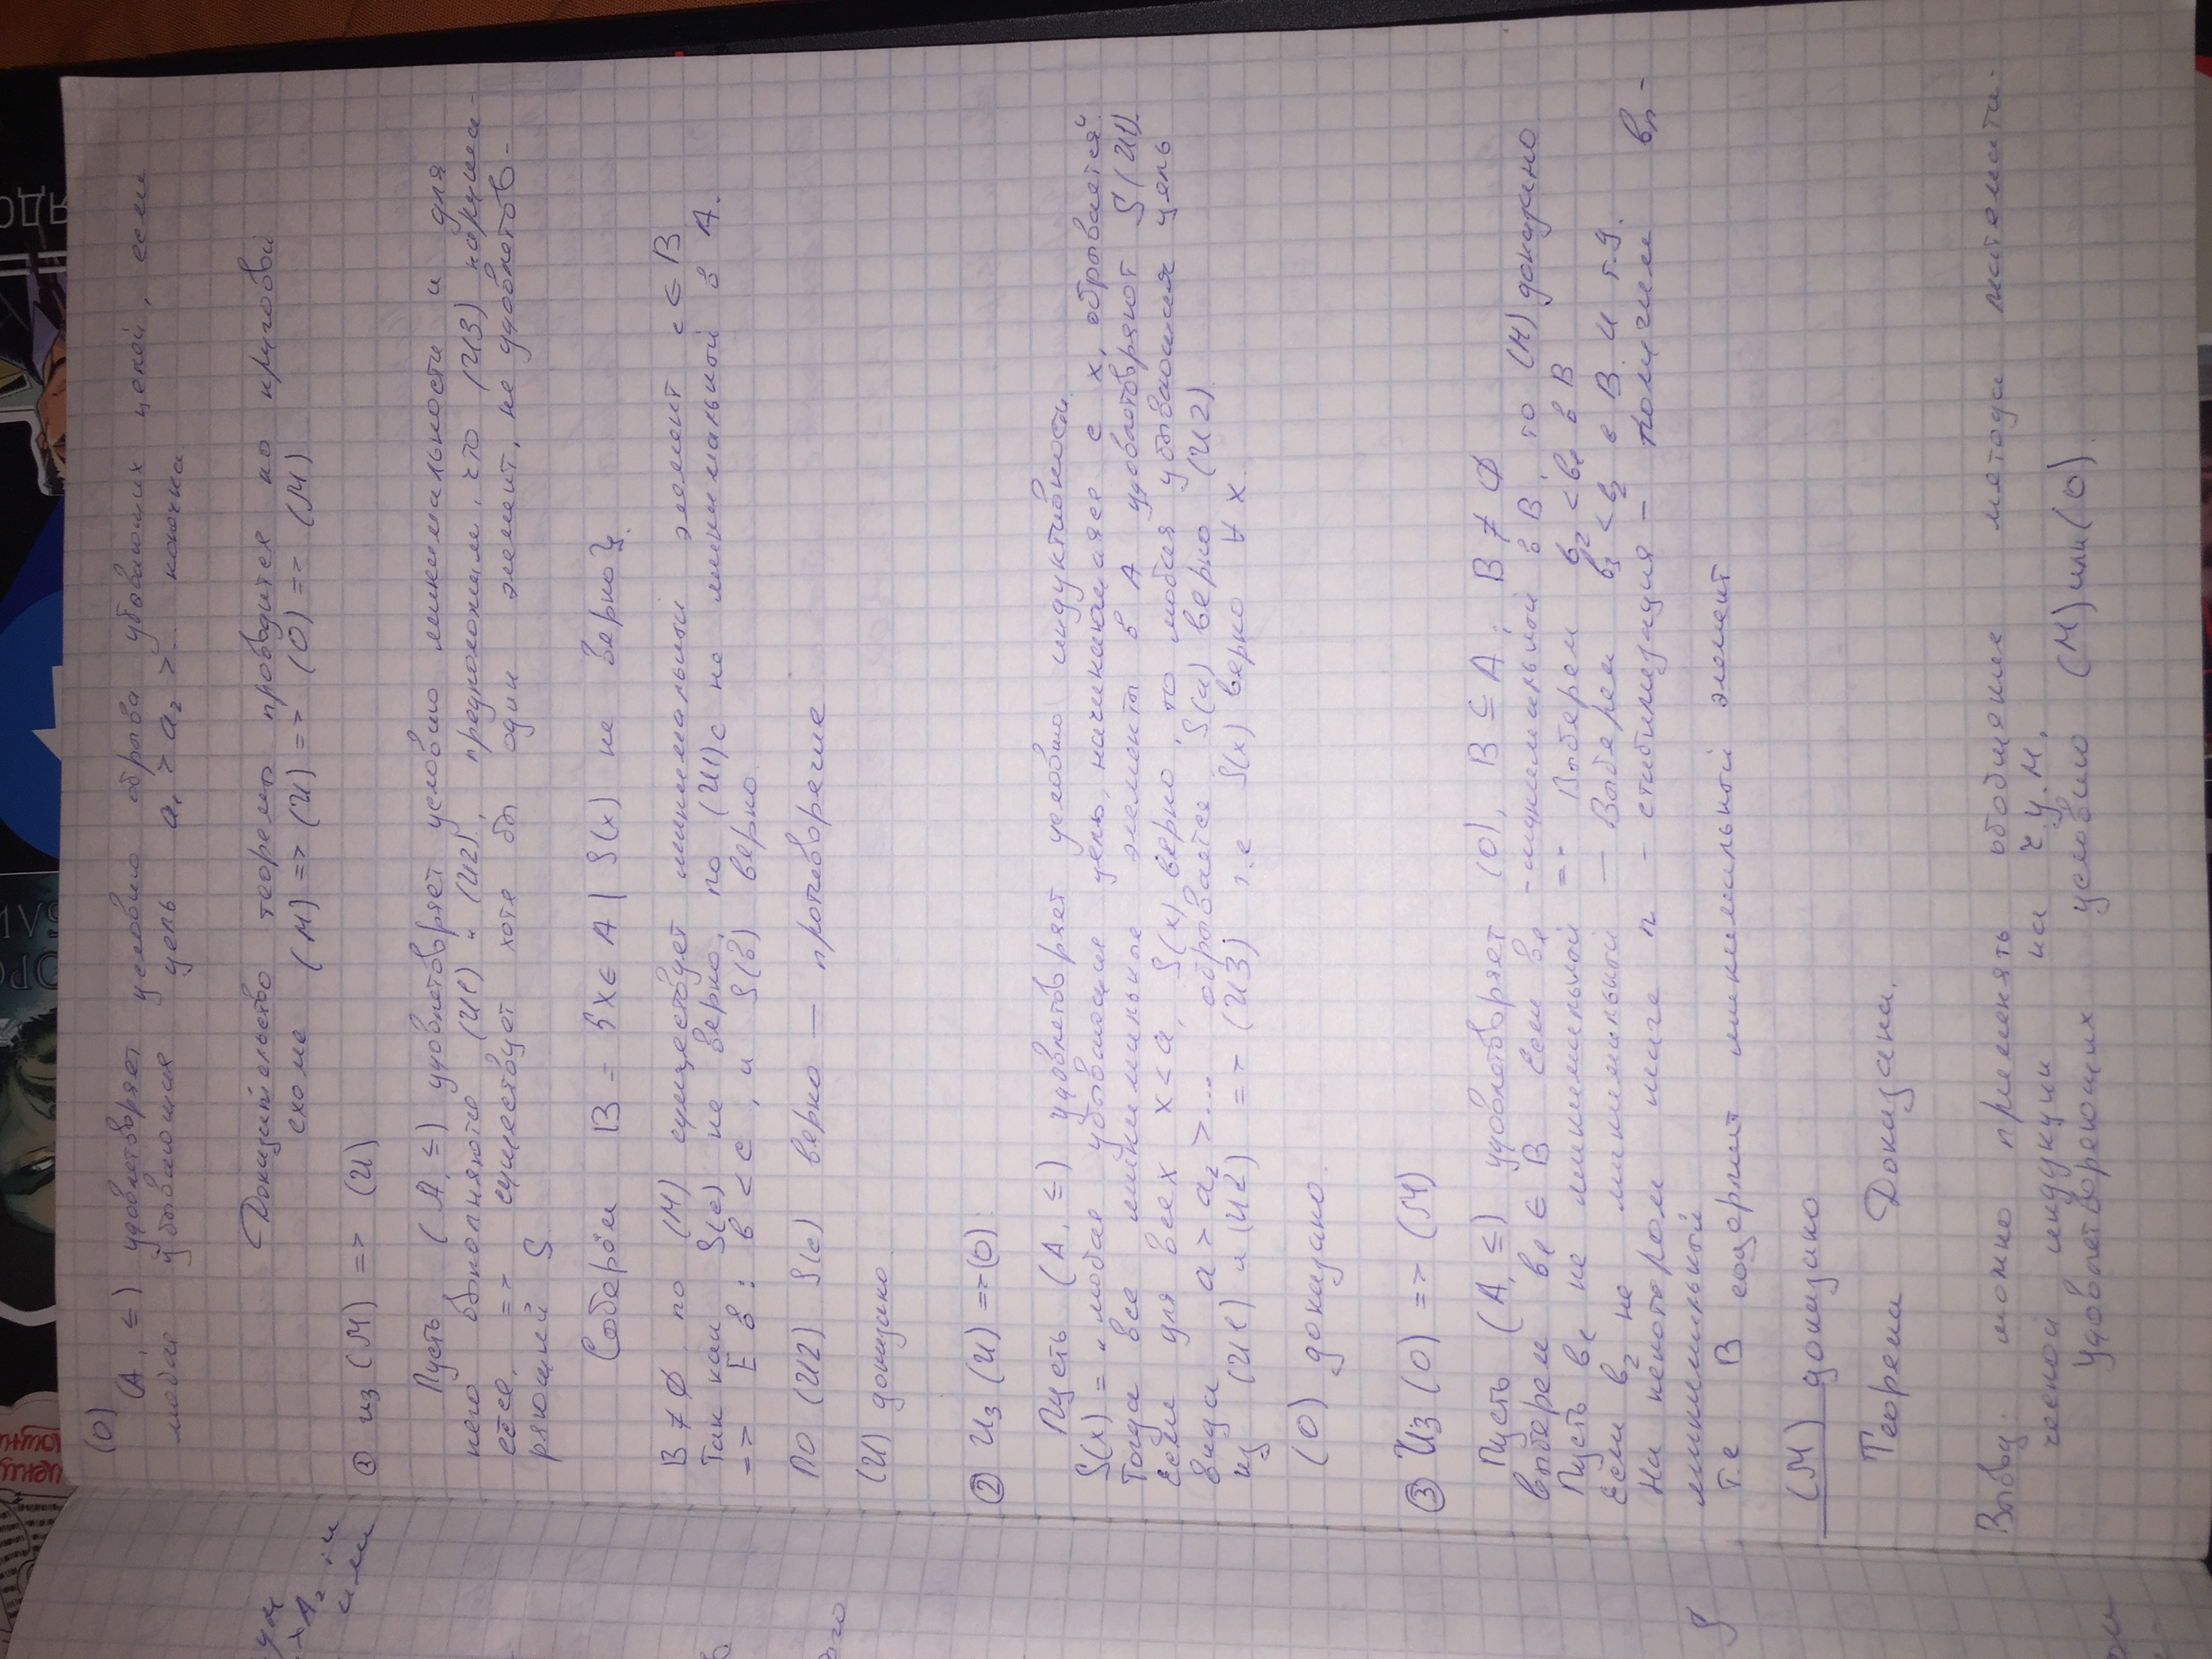 (О)
(A, ≤) удовлетворяет условию обрыва убывающих цепей, если
любая убывающая цепь a₁ > a₂ > ... конечна.
Доказательство теоремы проводится по круговой
схеме (М) => (И) => (О) => (М)
① из (М) => (И)
Пусть (A, ≤) удовлетворяет условию минимальности и для
него выполняются (И1) и (И2), предположим, что (И3) наруша-
ется, => существует хотя бы один элемент, не удовлетво-
ряющий S
Соберём B = {x ∈ A | S(x) не верно}.
B ≠ ∅ по (М) существует минимальный элемент c ∈ B
Так как S(c) не верно, по (И1) c не минимальный в A.
=> E в: в < c, и S(в) верно.
По (И2) S(c) верно — противоречие
(И) доказано.
② Из (И) => (О):
Пусть (A, ≤) удовлетворяет условию индуктивности.
S(x) = „любая убывающая цепь, начинающаяся с x, обрывается“.
Тогда все минимальные элементы в A удовлетворяют S (И1).
Если для всех x < a, S(x) верно, то любая убывающая цепь
вида a > a₂ > ... обрывается. S(a) верно (И2).
из (И1) и (И2) => (И3) т.е S(x) верно ∀ x.
(О) доказано.
③ Из (О) => (М)
Пусть (A, ≤) удовлетворяет (О), B ⊆ A, B ≠ ∅
выберем в₁ ∈ B Если в₁ - минимальной в B, то (М) доказано
Пусть в₁ не минимальной => Выберем в₂ < в₁ в B
Если в₂ не минимальной — Выберем в₃ < в₂ в B и т.д.
На некотором шаге n - стабилизация - получим вₙ -
минимальной
т.е B содержит минимальной элемент
(М) доказано
Теорема Доказана.
Вывод: можно применять обобщение метода математи-
ческой индукции на ч.у.м.
Удовлетворяющих условию (М) или (О).